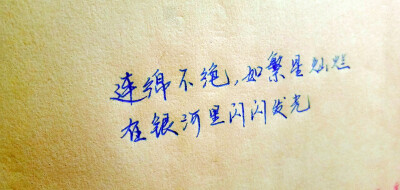 连绵不绝,如繁星灿烂
在银河里闪闪发光